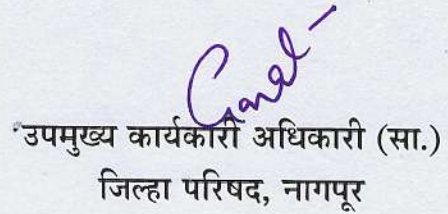 उपमुख्य कार्यकारी अधिकारी (सा.)
जिल्हा परिषद, नागपूर